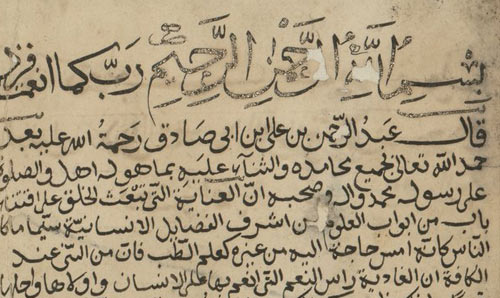 بسم الله الرحمن الرحيم رب كما انعمت فزد
قال عبد الرحمن بن علي ابن ابي صادق رحمة الله عليه بعد
حمد الله تعالى بجميع محامده والثناء عليه بما هو له اهل والصلوة
على رسوله محمد واله وصحبه ان العناية التي تبعث الخلق على اقتناء
باب من ابواب العلوم من اشرف الفضايل الانسانية سيما ما كا
الناس كافة امس حاجة اليه من غيره كعلم الطب فان من البين عند
الكافة ان العافية راس النعم التي انعم بها على الانسان واولاها واجلها